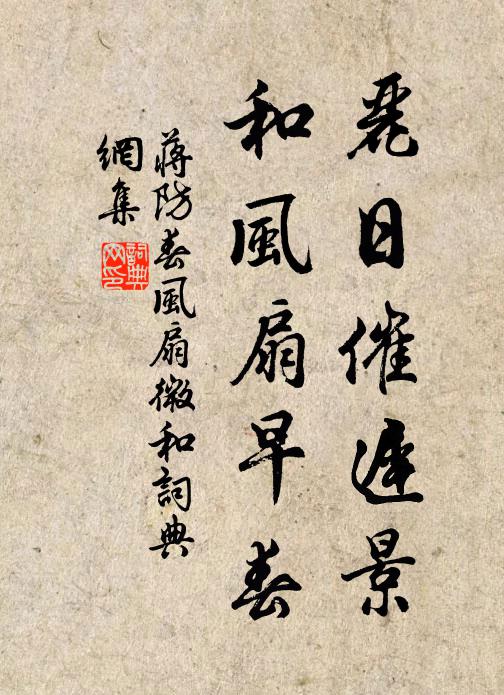 麗日催遲景
和風扇早春
蔣防春風扇微和詞典
網集
詞典
网印